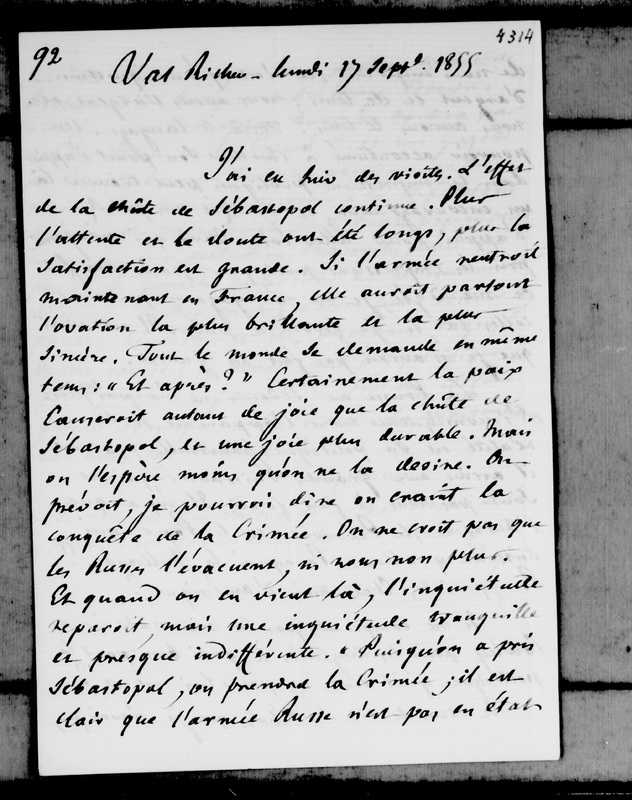 92
4314
Val Richer - lundi 17 Septb. 1855
J'ai eu hier des visites. L'effet
de la chûte de Sébastopol continue. Plus
l'attente et le doute ont été longs, plus la
satisfaction est grande. Si l'armée rentroit
maintenant en France, elle auroit partout
l'ovation la plus brillante et la plus
sincère. Tout le monde se demande en même
tems : "Et après ?" Certainement la paix
causeroit autant de joie que la chûte de
Sébastopol, et une joie plus durable. Mais
on l'espère moins qu'on ne la desire. On
prévoit, je pourrois dire on craint la
conquête de la Crimée. On ne croit pas que
les Russes l'évacuent, ni nous non plus.
Et quand on en vient là, l'inquiétude
reparoit, mais une inquiétude tranquille
et presque indifférente. "Puisqu'on a pris
Sébastopol, on prendra la Crimée ; il est
clair que l'armée Russe n'est pas en état